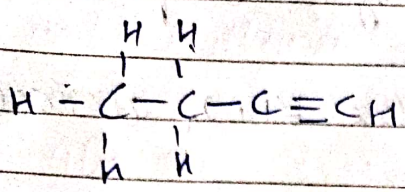 H H
H - C - C - C ≡ CH
H H